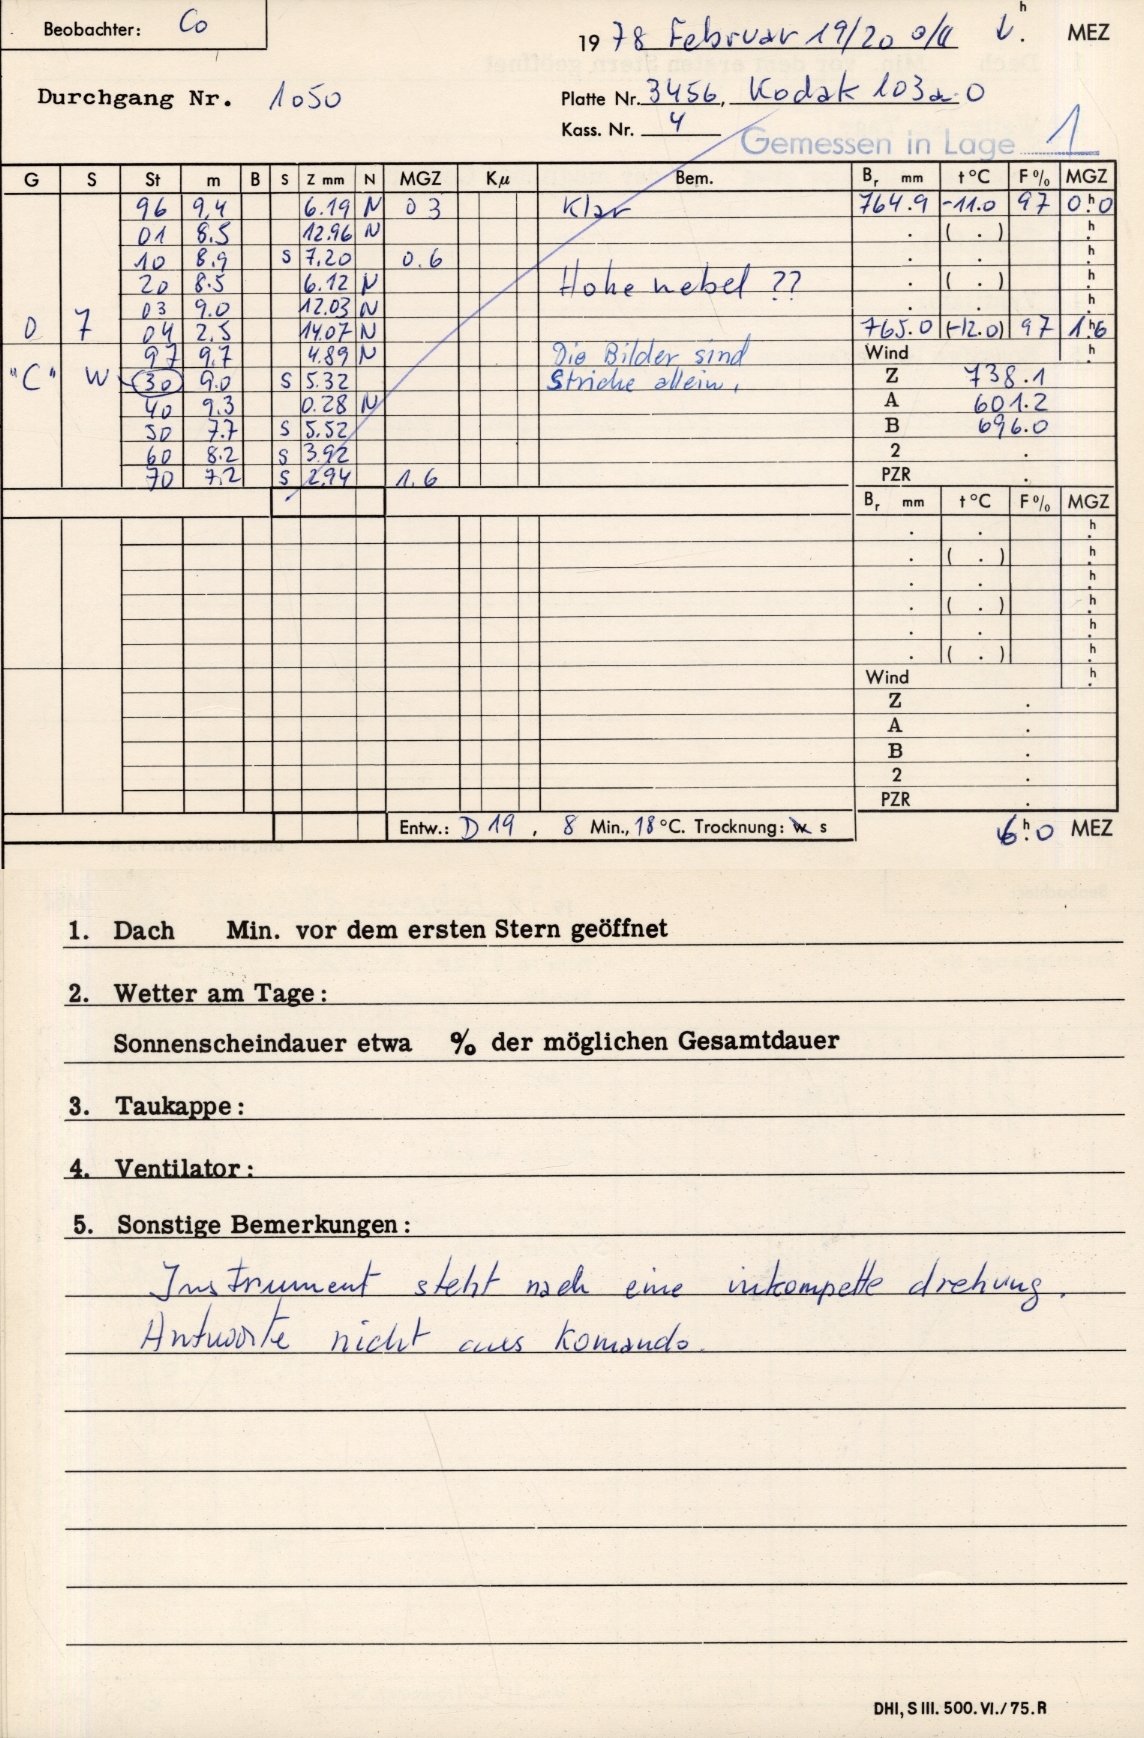 Beobachter: Co
1978 Februar 19/20 h MEZ
Durchgang Nr. 1050
Platte Nr. 3456, Kodak 103a-O
Kass. Nr. 4
Gemessen in Lage 1
G S St m B S Z mm N MGZ Kμ Bem. Br mm t °C F % MGZ
96 9,4 6.19 N 03 Klar 764.9 -11.0 97 0h.0
01 8.5 12.96 N . ( . ) h
10 8.9 S 7.20 0.6 . . h
20 8.5 6.12 N Hohe nebel ?? . ( . ) h
03 9.0 12.03 N . . h
0 7 04 2.5 14.07 N 765.0 (-12.0) 97 1h.6
97 9.7 4.89 N Die Bilder sind Wind h
"C" W 30 9.0 S 5.32 Striche allein, Z 738.1
40 9.3 0.28 N A 601.2
50 7.7 S 5.52 B 696.0
60 8.2 S 3.92 2 .
70 7.2 S 2.94 1.6 PZR .
Br mm t °C F % MGZ
. . h
. ( . ) h
. . h
. ( . ) h
. . h
. ( . ) h
Wind h
Z .
A .
B .
2 .
PZR .
Entw.: D 19 , 8 Min., 18 °C. Trocknung: w s 6h.0 MEZ
1. Dach Min. vor dem ersten Stern geöffnet
2. Wetter am Tage:
Sonnenscheindauer etwa % der möglichen Gesamtdauer
3. Taukappe:
4. Ventilator:
5. Sonstige Bemerkungen:
Instrument steht nach eine inkompette drehung.
Antworte nicht aus Komando.
DHI, S III. 500. VI./75. R